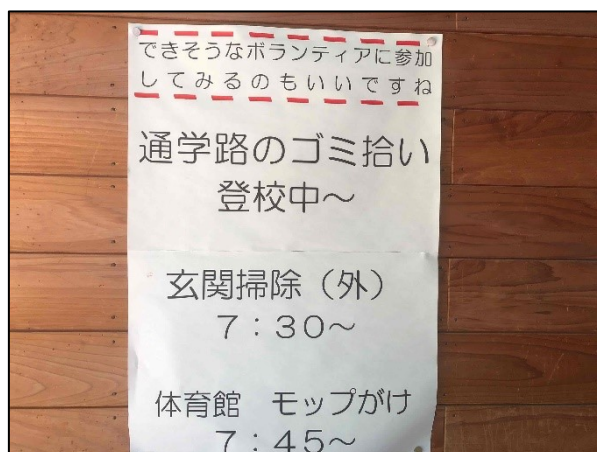 できそうなボランティアに参加
してみるのもいいですね
通学路のゴミ拾い
登校中～
玄関掃除（外）
７：３０～
体育館　モップがけ
７：４５～